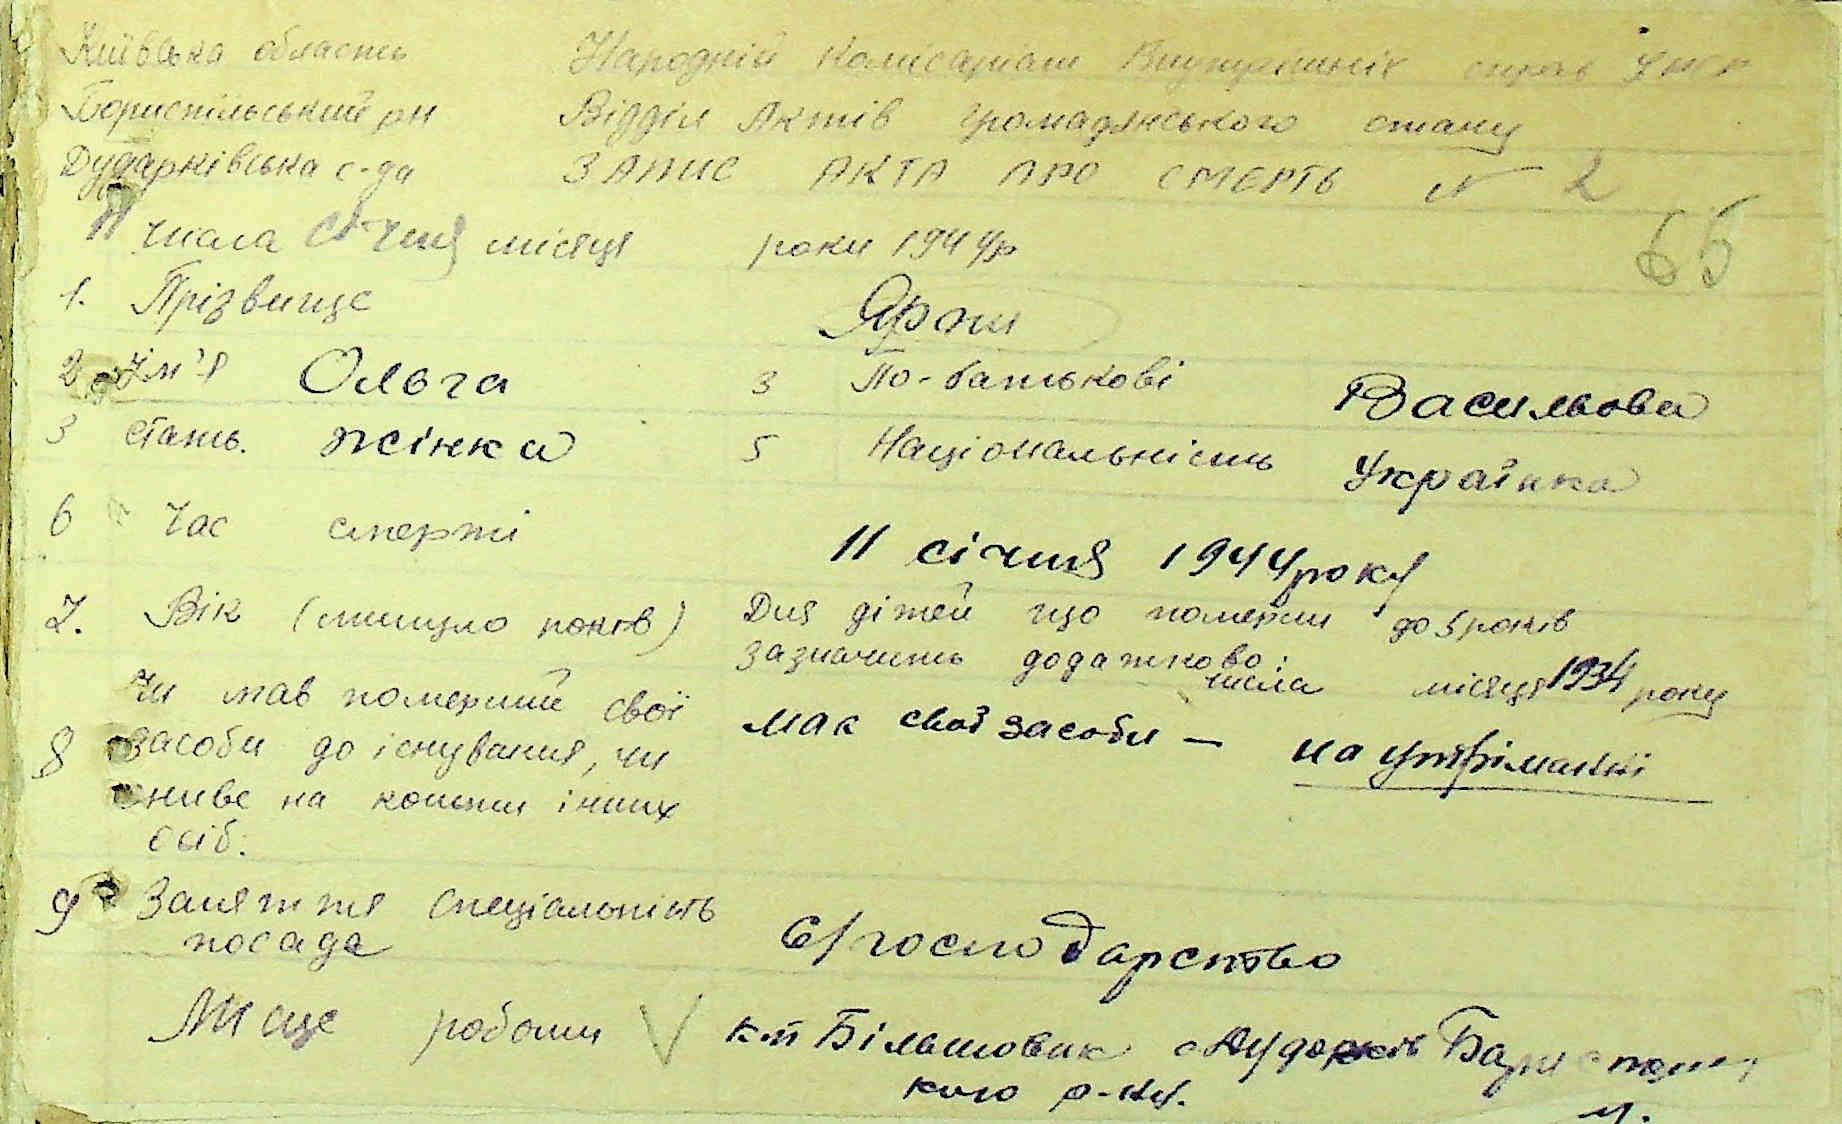 Київська область Народній Комісаріат Внутрішніх справ УРСР
Бориспільський рн Відділ Актів громадянського стану
Дударківська с-да ЗАПИС АКТА ПРО СМЕРТЬ N 2
11 числа січня місяця роки 1944р
65
1. Прізвище
2 Ім'я Ольга 3 По-батькові Васильова
3 Стать. жінка 5 Національність Українка
6 Час смерті 11 січня 1944 року
7. Вік (минуло років) Для дітей що померли до 5 років
зазначить додатково:
числа місяця 1934 року
8 Чи мав померший свої засоби до існування, чи живе на кошти інших осіб.
мав свої засоби — на утріманні
9 Заняття спеціальність посада
с/господарство
Місце роботи V к-п Більшовик с Дударків Бориспольс
кого р-ну.